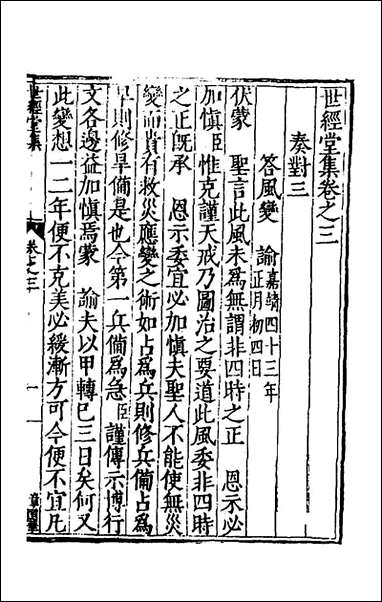 世經堂集卷之三
奏對三
答風變 諭嘉靖四十三年
正月初四日
伏蒙 聖言此風未為無謂非四時之正 恩示必
加慎臣惟克謹天戒乃圖治之要道此風委非四時
之正旣承 恩示委宜必加慎夫聖人不能使無災
變而貴有救災應變之術如占為兵則修兵備占為
旱則修旱備是也今第一兵備為急臣謹傳示博行
文各邊益加慎焉蒙 諭夫以甲轉已三日矣何又
此變想一二年便不克美必緩漸方可今便不宜凡
世經堂集
卷之三
一